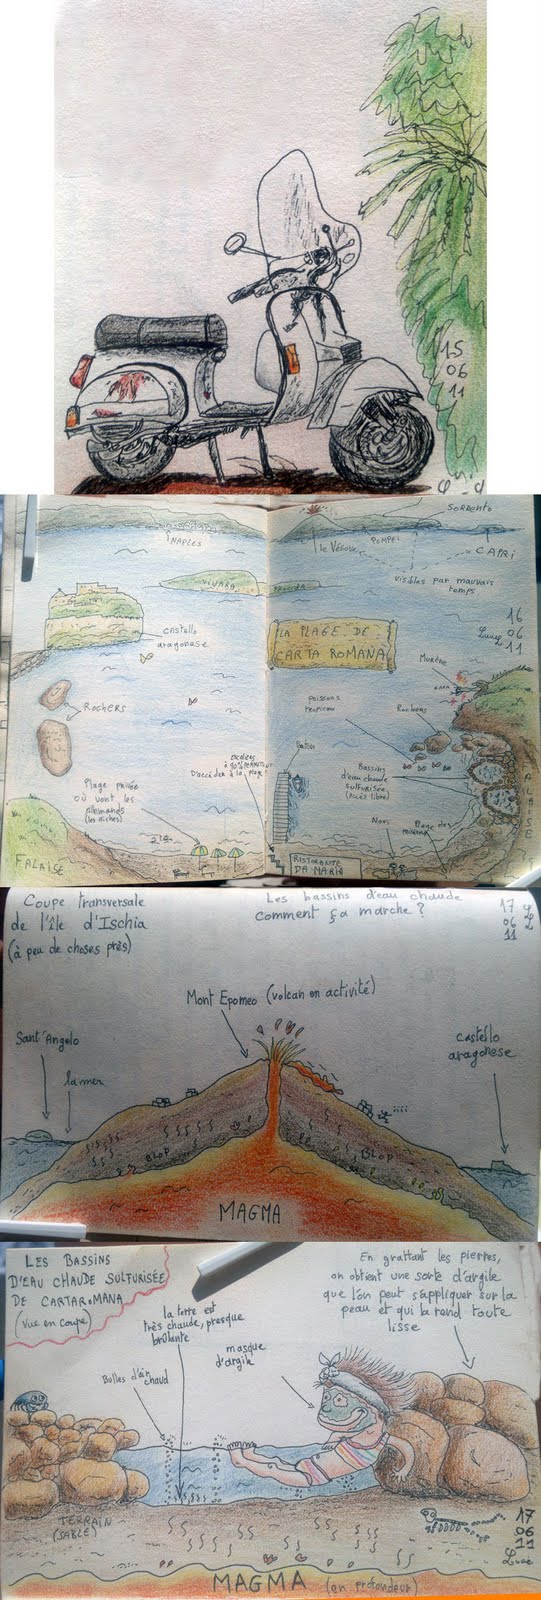 15
06
11
NAPLES
le Vésuve
POMPEI
SORRENTO
CAPRI
visibles par mauvais
temps
VIVARA
PROCIDA
castello
aragonese
LA PLAGE DE
CARTA ROMANA
16
06
11
Murène
Rochers
poissons
tropicaux
Rochers
Bassins
d'eau chaude
sulfurisée
(accès libre)
D'accéder à la plage
Plage privée
où vont les
allemands
(les riches)
Nous
FALAISE
FALAISE
RISTORANTE
DA MARIA
Coupe transversale
de l'île d'Ischia
(à peu de choses près)
Les bassins d'eau chaude
comment ça marche ?
17
06
11
Mont Epomeo (volcan en activité)
Sant'Angelo
la mer
castello
aragonese
BLOP
BLOP
MAGMA
LES BASSINS
D'EAU CHAUDE SULFURISÉE
DE CARTAROMANA
(Vue en coupe)
En grattant les pierres,
on obtient une sorte d'argile
que l'on peut s'appliquer sur la
peau et qui la rend toute
lisse
la terre est
très chaude, presque
brûlante
masque
d'argile
Bulles d'air
chaud
TERRAIN
(SABLE)
17
06
11
MAGMA (en profondeur)